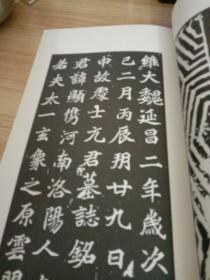 維大魏延昌二年歲次
己二月丙辰朔廿九日
申故處士元君墓誌銘
君諱顯儁河南洛陽人
若夫太一玄象之原雲明